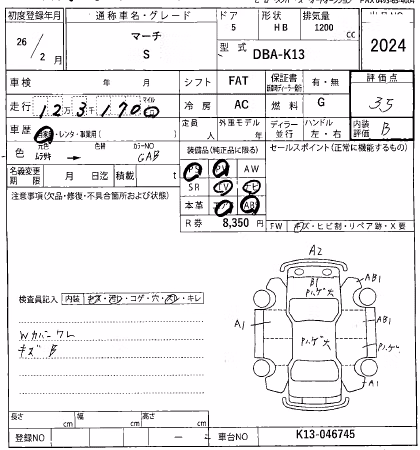 初度登録年月 通称車名・グレード ドア 形状 排気量
26/2月 マーチ S 5 HB 1200 cc
型式 DBA-K13 2024
車検 年 月 シフト FAT 保証書 有・無 評価点
走行 12万3千170 冷房 AC 燃料 G 3.5
車歴 自家用・レンタ・事業用( ) 定員 人 外車モデル 年 ディーラー 並行 ハンドル 左・右 内装評価 B
色 元色 色替 カラーNO GAB
装備品(純正品に限る) セールスポイント(正常に機能するもの)
名義変更期限 月 日迄 積載 t
PS PW AW
SR TV ナビ
注意事項(欠品・修復・不具合箇所および状態)
本革 エアB ABS
R券 8,350 円 FW キズ・ヒビ割・リペア跡・X要
A2
検査員記入 内装 キズ・汚レ・コゲ・穴・スレ・キレ
B1 AB1
ハゲ穴
A1 ハゲ穴 AB1
Wカバーワレ
キズB
A1
長さ cm 幅 cm 高さ cm
登録NO ー 車台NO K13-046745